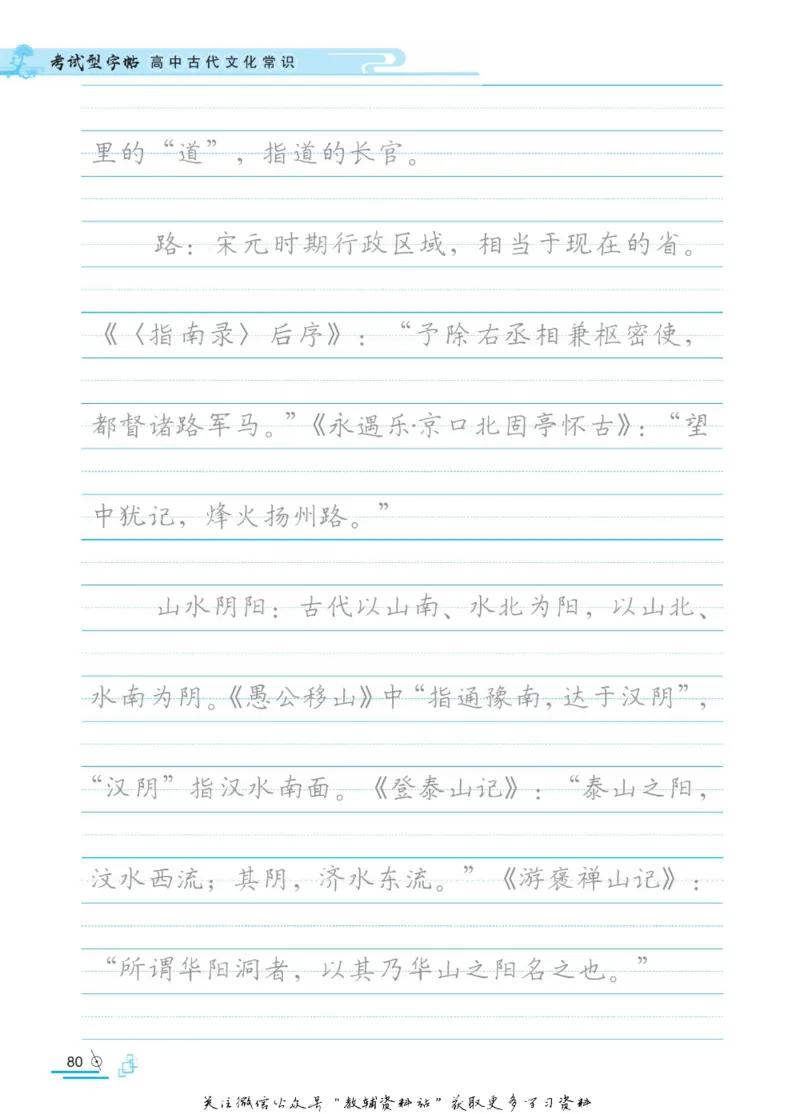 考试型字帖 高中古代文化常识
里的“道”，指道的长官。
路：宋元时期行政区域，相当于现在的省。
《〈指南录〉后序》：“予除右丞相兼枢密使，
都督诸路军马。”《永遇乐·京口北固亭怀古》：“望
中犹记，烽火扬州路。”
山水阴阳：古代以山南、水北为阳，以山北、
水南为阴。《愚公移山》中“指通豫南，达于汉阴”，
“汉阴”指汉水南面。《登泰山记》：“泰山之阳，
汶水西流；其阴，济水东流。”《游褒禅山记》：
“所谓华阳洞者，以其乃华山之阳名之也。”
80
关注微信公众号“教辅资料站”获取更多学习资料